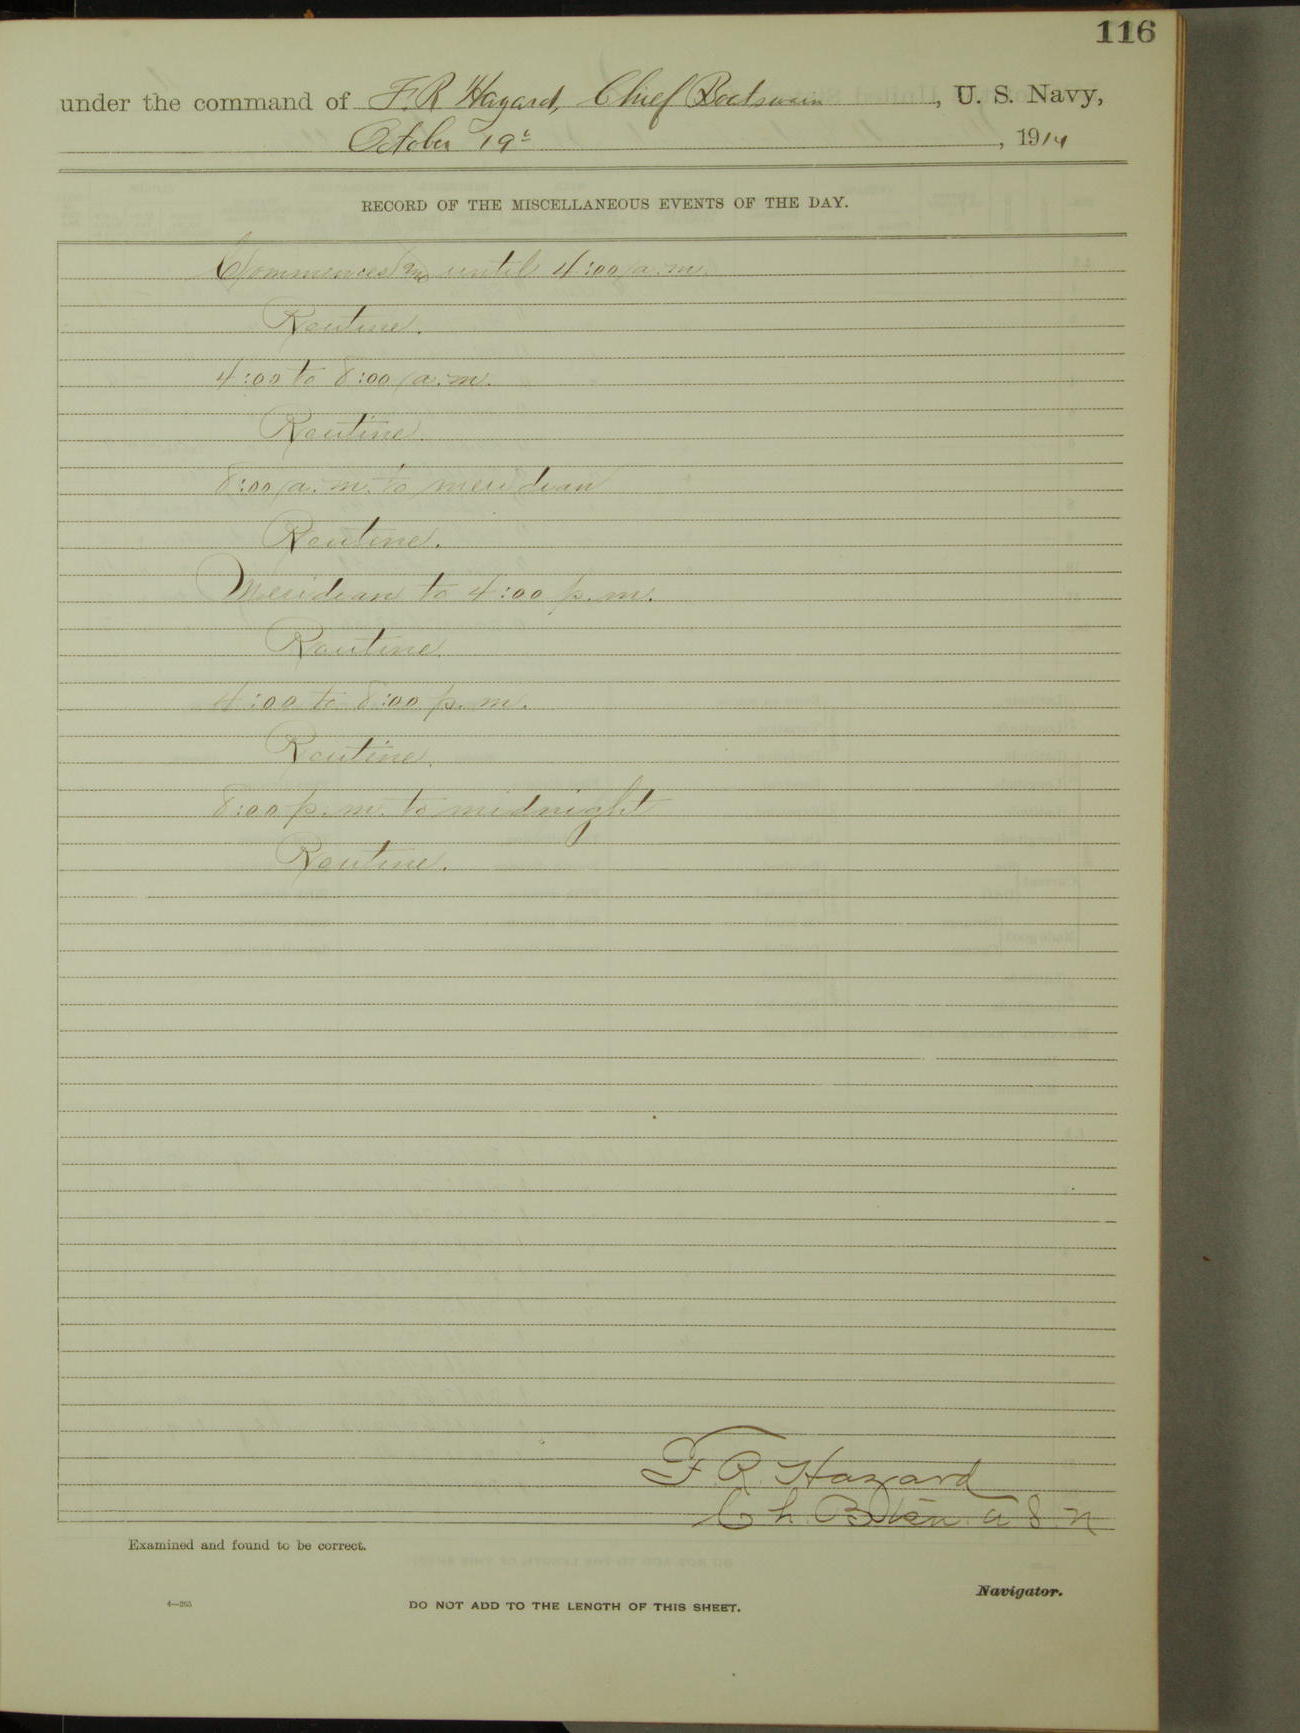 116
under the command of F. R. Hazard, Chief Boatswain, U. S. Navy,
October 19th, 1914
RECORD OF THE MISCELLANEOUS EVENTS OF THE DAY.
Commences and until 4:00 a.m.
Routine.
4:00 to 8:00 a.m.
Routine.
8:00 a.m. to meridian
Routine.
Meridian to 4:00 p.m.
Routine.
4:00 to 8:00 p.m.
Routine.
8:00 p.m. to midnight
Routine.
F. R. Hazard
Ch. Btsn. U S. N
Examined and found to be correct.
Navigator.
4—265
DO NOT ADD TO THE LENGTH OF THIS SHEET.